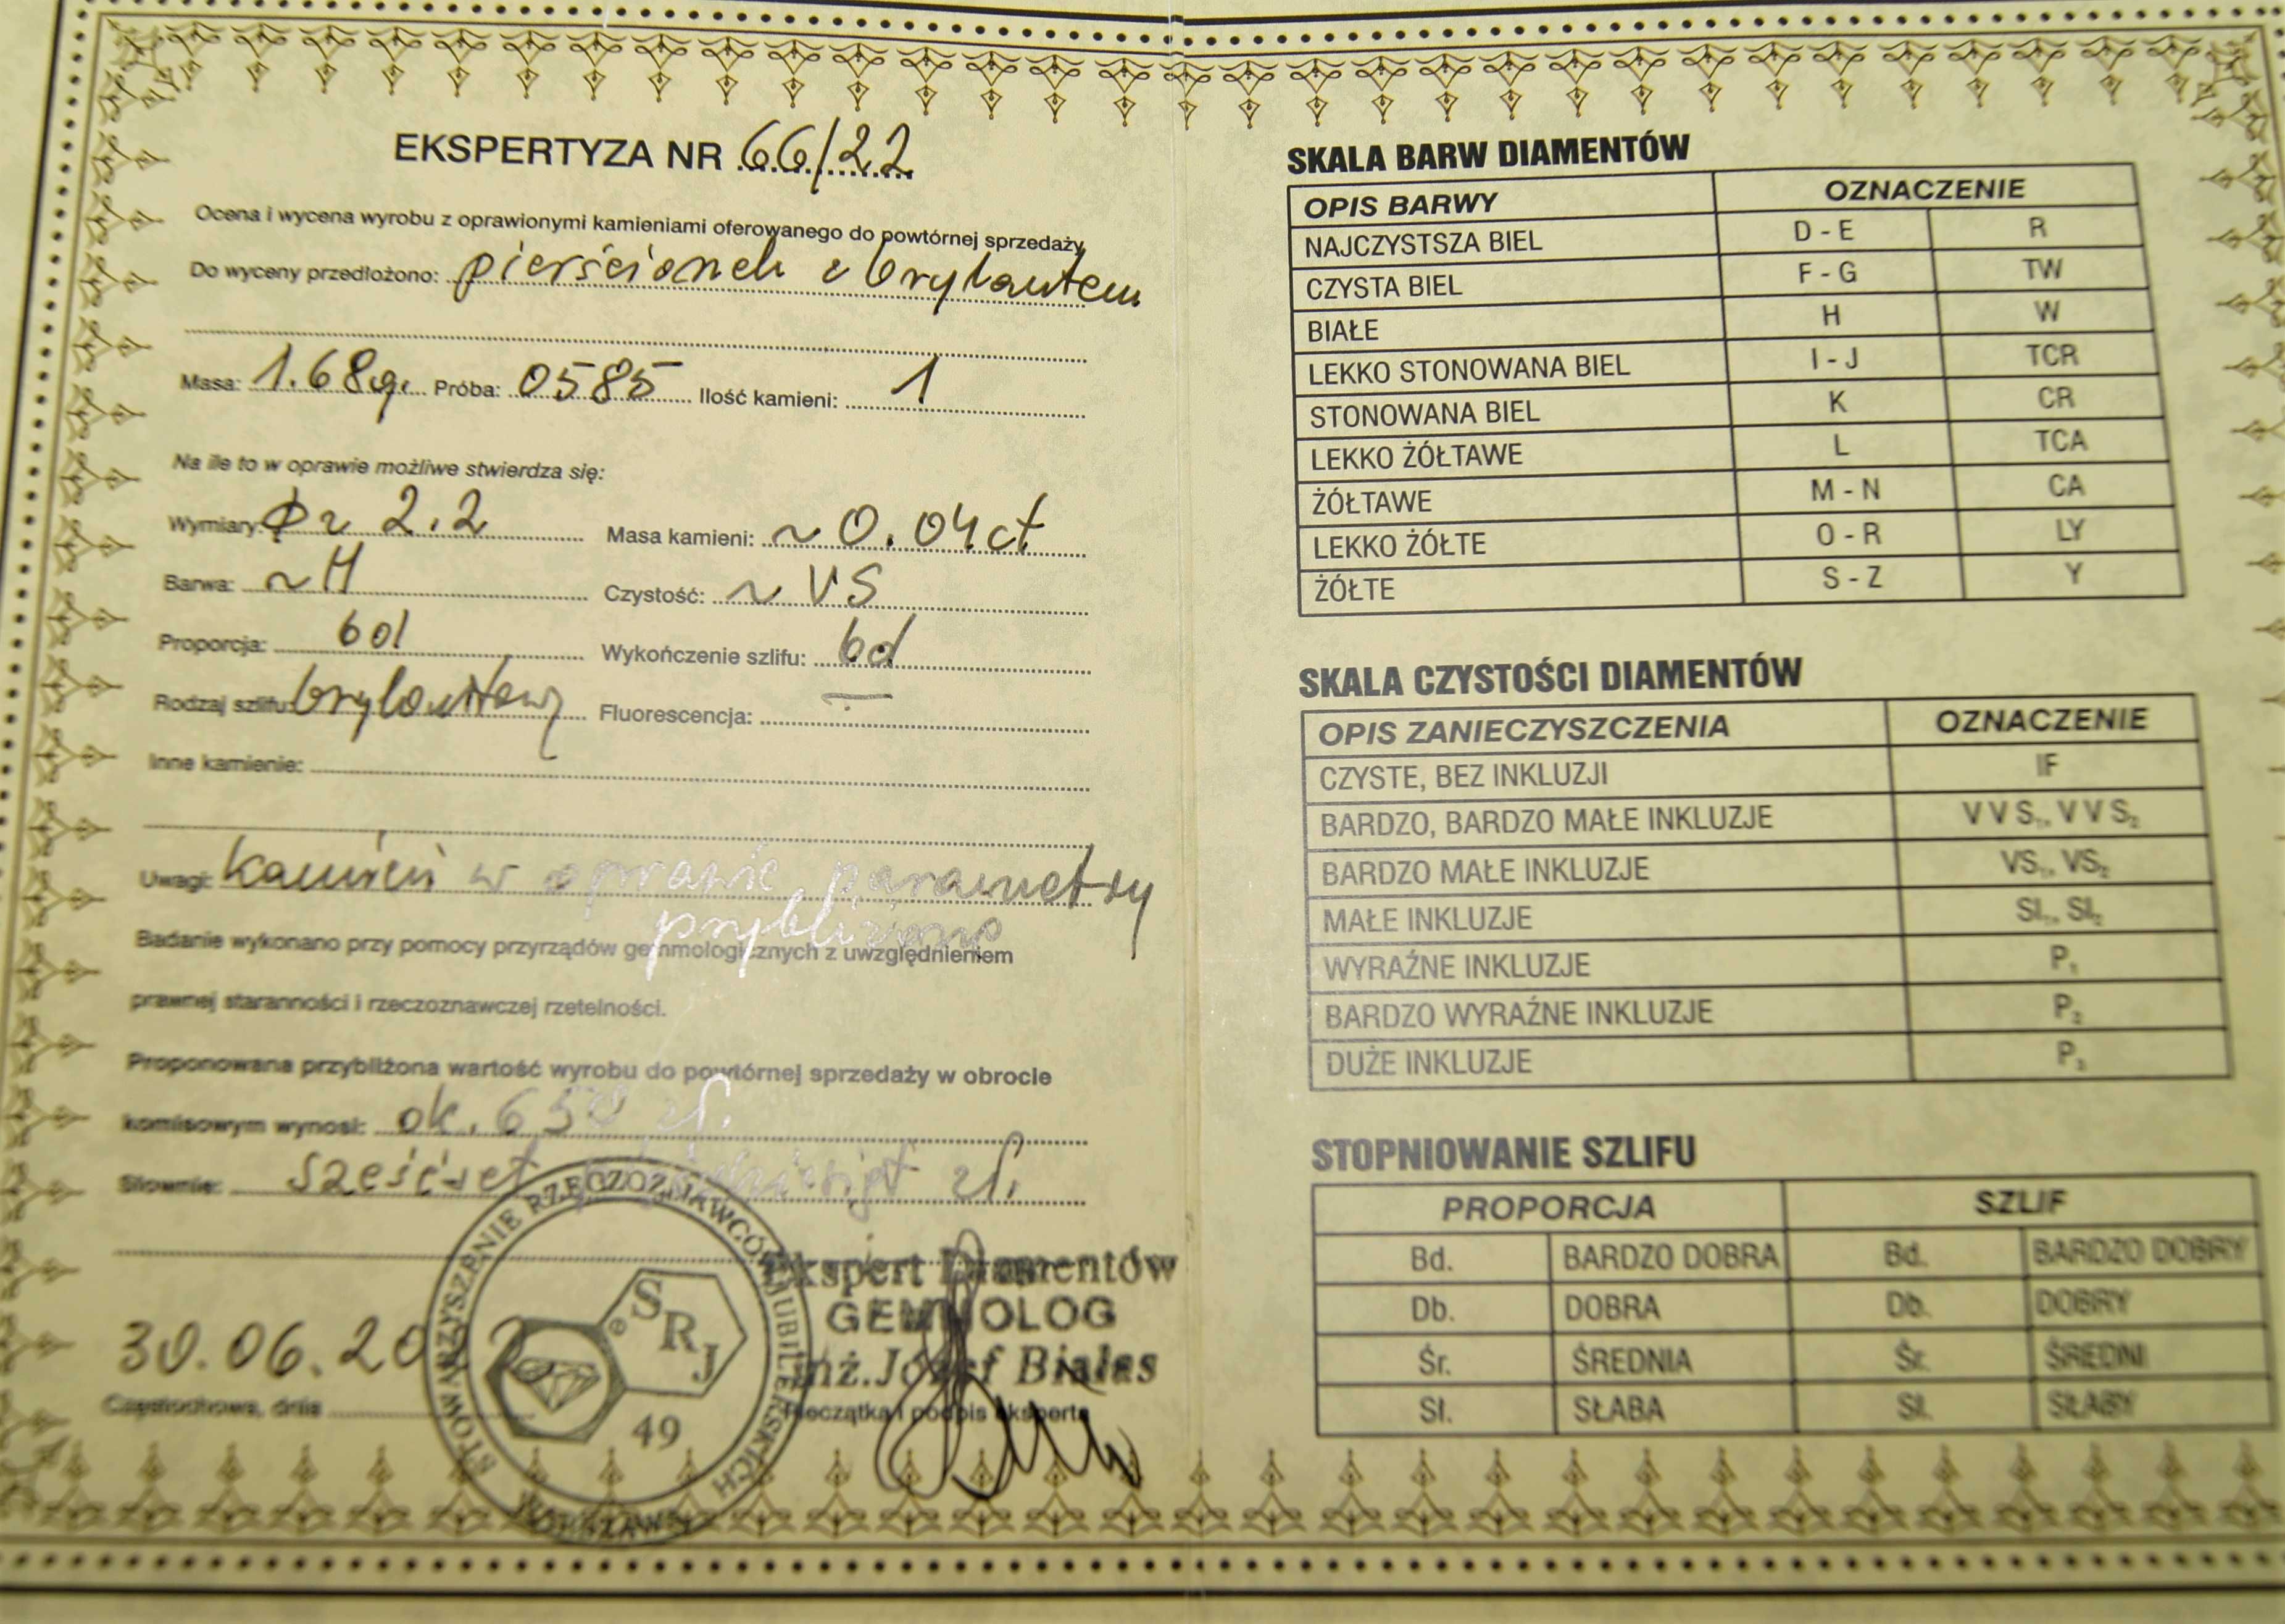 EKSPERTYZA NR 66/22
Ocena i wycena wyrobu z oprawionymi kamieniami oferowanego do powtórnej sprzedaży
Do wyceny przedłożono: pierścionek z brylantem
Masa: 1.68g. Próba: 0585 Ilość kamieni: 1
Na ile to w oprawie możliwe stwierdza się:
Wymiary: Φ ~ 2.2 Masa kamieni: ~ 0.04ct
Barwa: ~H Czystość: ~ VS
Proporcja: bd Wykończenie szlifu: bd
Rodzaj szlifu: brylantowy Fluorescencja: —
Inne kamienie:
Uwagi: Kamień w oprawie, parametry
przybliżone
Badanie wykonano przy pomocy przyrządów gemmologicznych z uwzględnieniem
prawnej staranności i rzeczoznawczej rzetelności.
Proponowana przybliżona wartość wyrobu do powtórnej sprzedaży w obrocie
komisowym wynosi: ok. 650 zł.
Słownie: sześćset pięćdziesiąt zł.
30.06.2022
Częstochowa, dnia
STOWARZYSZENIE RZECZOZNAWCÓW JUBILERSKICH
WARSZAWA
SRJ
49
Ekspert Diamentów
GEMMOLOG
inż. Józef Białas
Pieczątka i podpis eksperta
SKALA BARW DIAMENTÓW
OPIS BARWY OZNACZENIE
NAJCZYSTSZA BIEL D - E R
CZYSTA BIEL F - G TW
BIAŁE H W
LEKKO STONOWANA BIEL I - J TCR
STONOWANA BIEL K CR
LEKKO ŻÓŁTAWE L TCA
ŻÓŁTAWE M - N CA
LEKKO ŻÓŁTE O - R LY
ŻÓŁTE S - Z Y
SKALA CZYSTOŚCI DIAMENTÓW
OPIS ZANIECZYSZCZENIA OZNACZENIE
CZYSTE, BEZ INKLUZJI IF
BARDZO, BARDZO MAŁE INKLUZJE V V S₁, V V S₂
BARDZO MAŁE INKLUZJE VS₁, VS₂
MAŁE INKLUZJE SI₁, SI₂
WYRAŹNE INKLUZJE P₁
BARDZO WYRAŹNE INKLUZJE P₂
DUŻE INKLUZJE P₃
STOPNIOWANIE SZLIFU
PROPORCJA SZLIF
Bd. BARDZO DOBRA Bd. BARDZO DOBRY
Db. DOBRA Db. DOBRY
Śr. ŚREDNIA Śr. ŚREDNI
Sł. SŁABA Sł. SŁABY